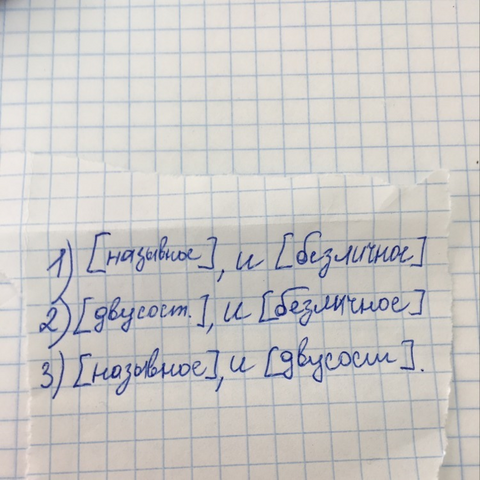 1) [назывное], и [безличное]
2) [двусост.], и [безличное]
3) [назывное], и [двусост].